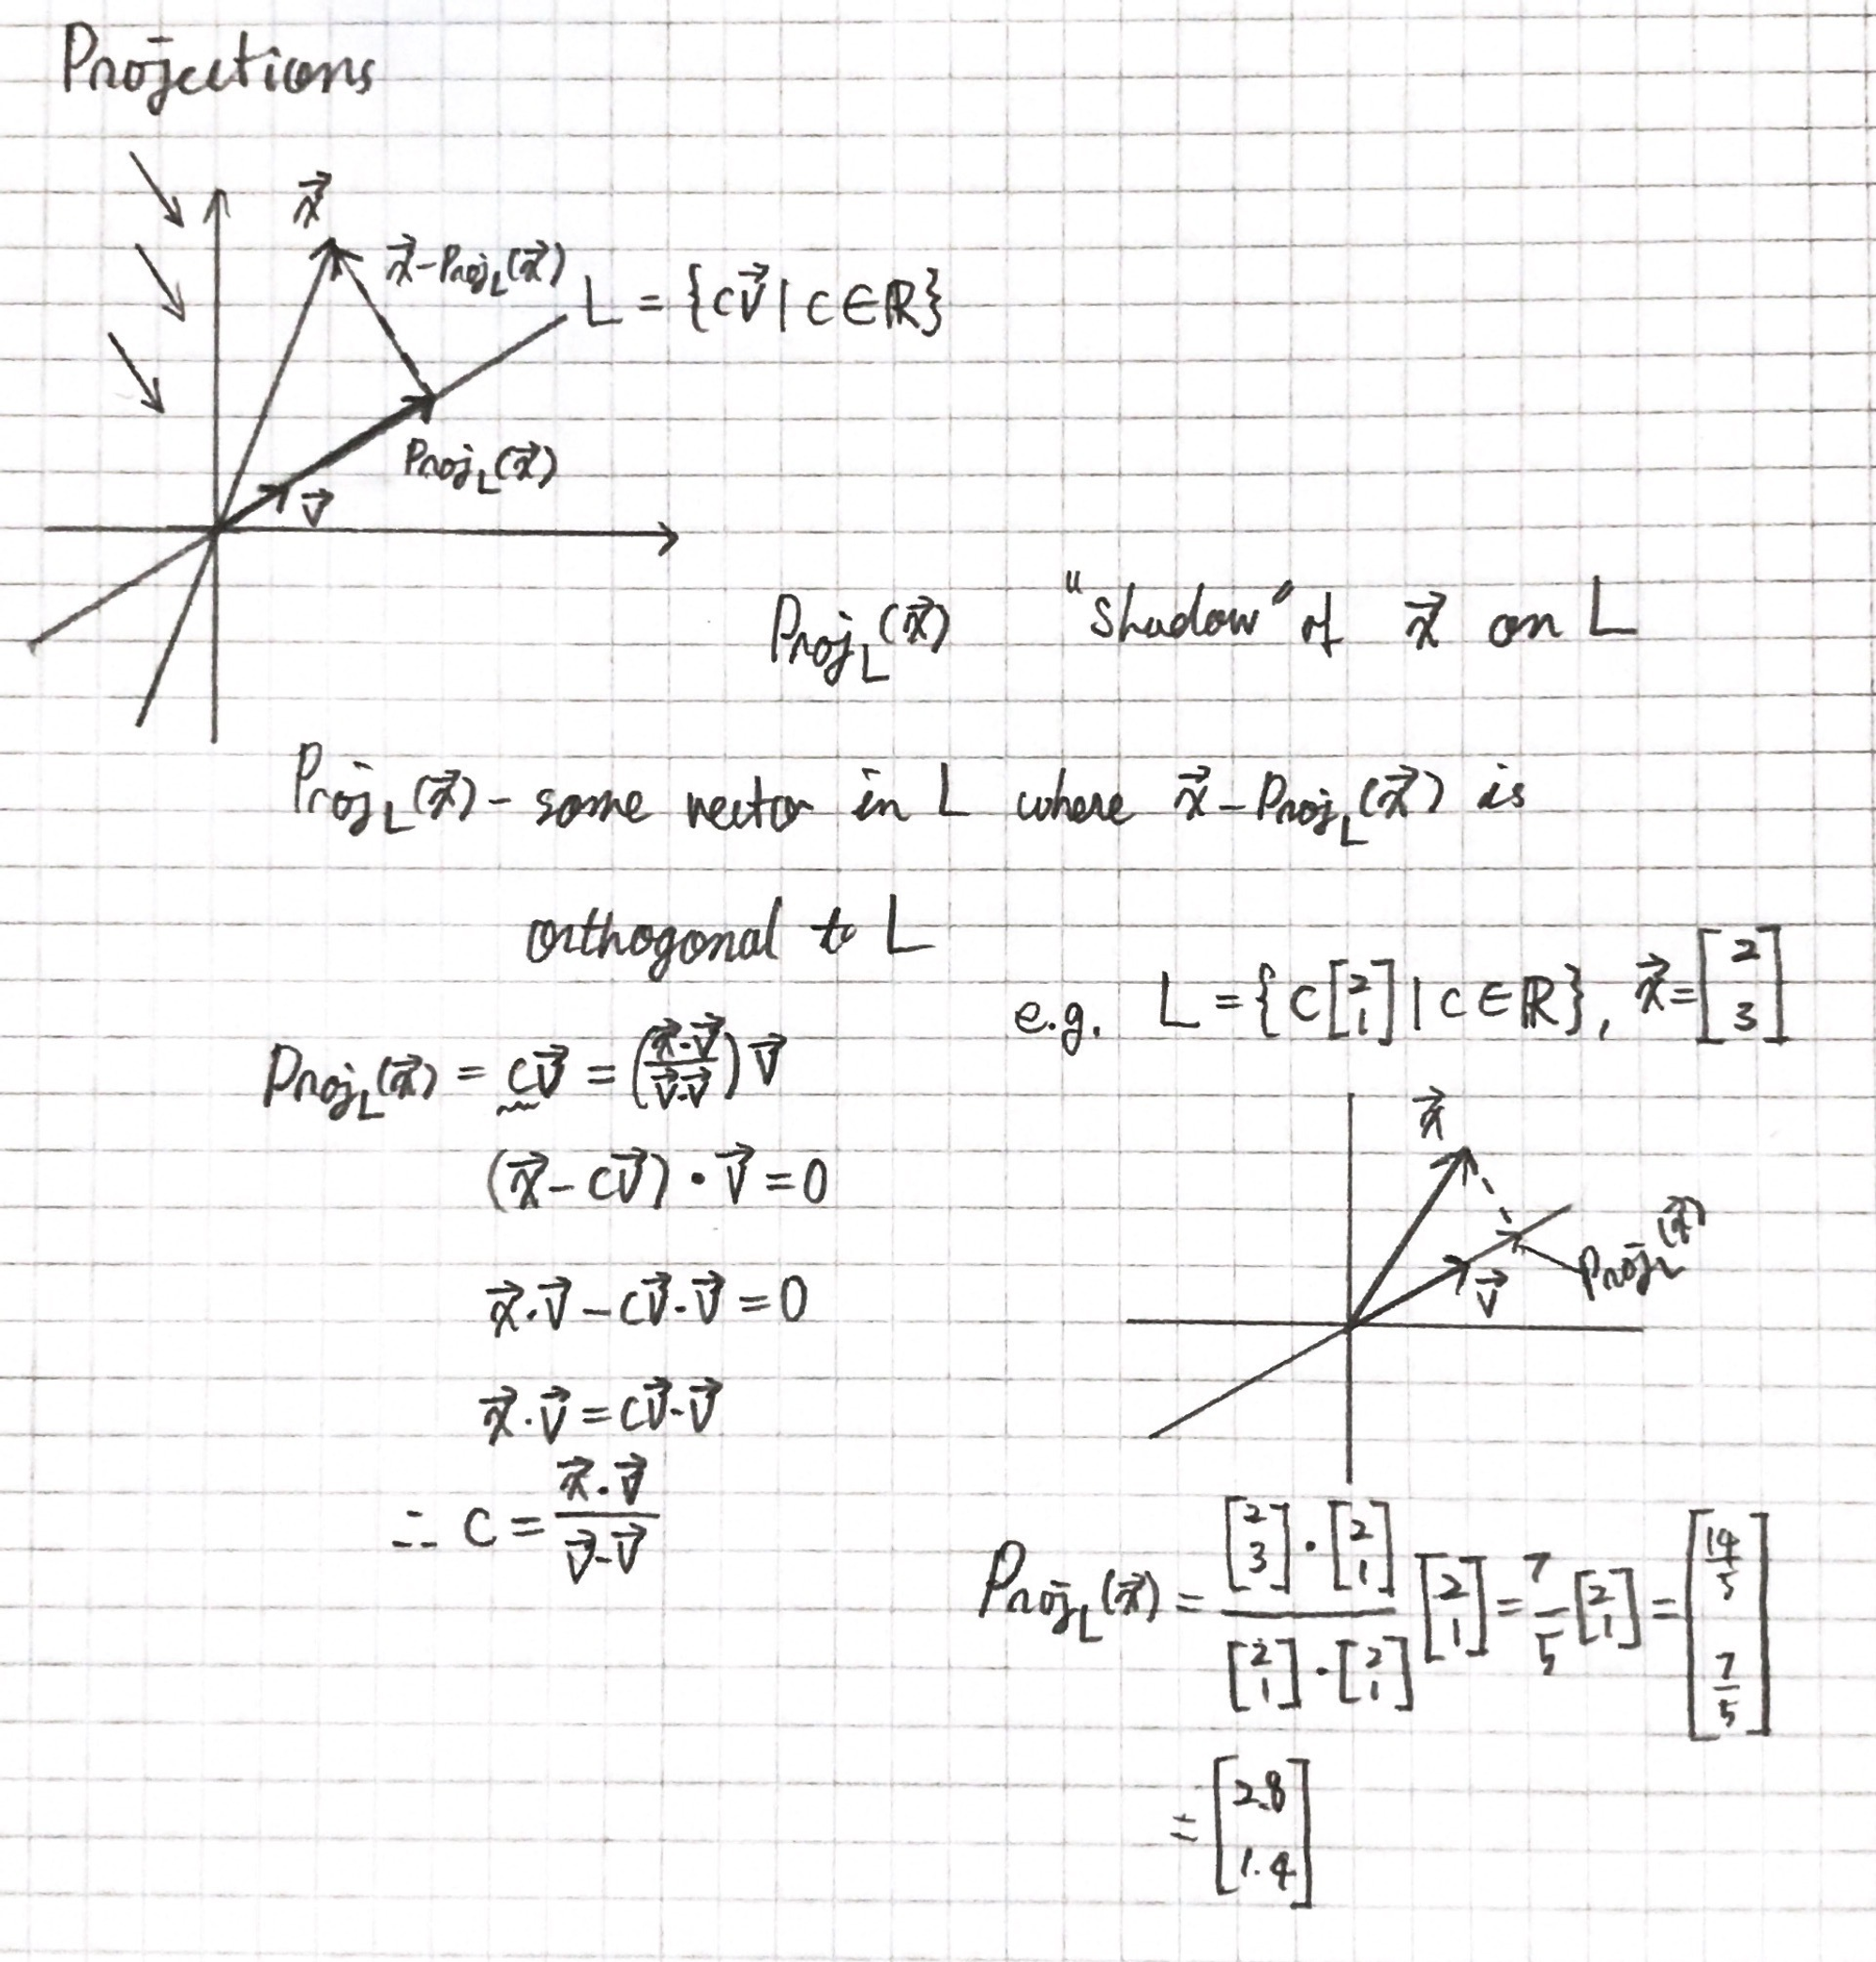 Projections
x⃗
x⃗-Proj_L(x⃗)
L = {cv⃗ | c∈ℝ}
Proj_L(x⃗)
v⃗
Proj_L(x⃗) "shadow" of x⃗ on L
Proj_L(x⃗) - some vector in L where x⃗-Proj_L(x⃗) is
orthogonal to L
Proj_L(x⃗) = cv⃗ = (x⃗·v⃗/v⃗·v⃗) v⃗
(x⃗-cv⃗)·v⃗=0
x⃗·v⃗-cv⃗·v⃗=0
x⃗·v⃗=cv⃗·v⃗
∴ c = x⃗·v⃗/v⃗·v⃗
e.g. L = {c[2 1] | c∈ℝ}, x⃗=[2 3]
x⃗
Proj_L(x⃗)
v⃗
Proj_L(x⃗) = [2 3]·[2 1]/[2 1]·[2 1] [2 1] = 7/5 [2 1] = [14/5 7/5]
= [2.8 1.4]